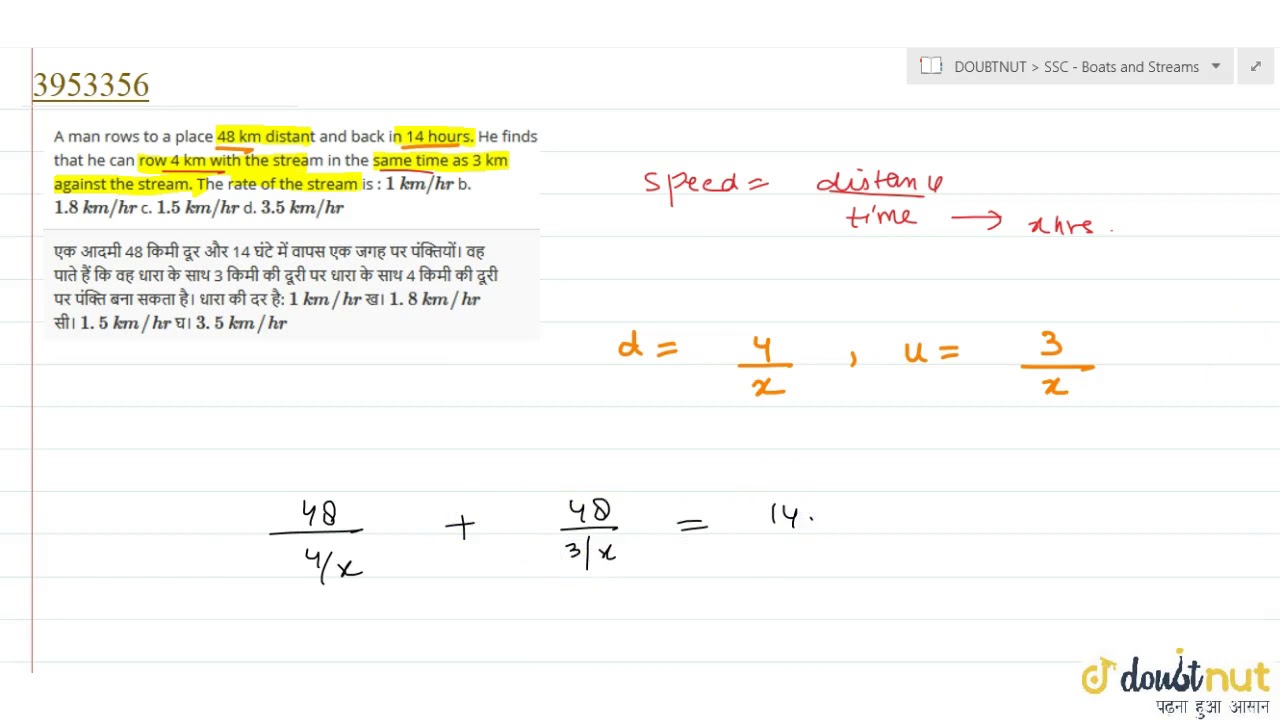 DOUBTNUT > SSC - Boats and Streams
3953356
A man rows to a place 48 km distant and back in 14 hours. He finds
that he can row 4 km with the stream in the same time as 3 km
against the stream. The rate of the stream is : 1 km/hr b.
1.8 km/hr c. 1.5 km/hr d. 3.5 km/hr
एक आदमी 48 किमी दूर और 14 घंटे में वापस एक जगह पर पंक्तियों। वह
पाते हैं कि वह धारा के साथ 3 किमी की दूरी पर धारा के साथ 4 किमी की दूरी
पर पंक्ति बना सकता है। धारा की दर है: 1 km/hr ख। 1. 8 km/hr
सी। 1. 5 km/hr घ। 3. 5 km/hr
speed = distance
time → x hrs.
d = 4/x , u = 3/x
48/(4/x) + 48/(3/x) = 14.
doubtnut
पढ़ना हुआ आसान